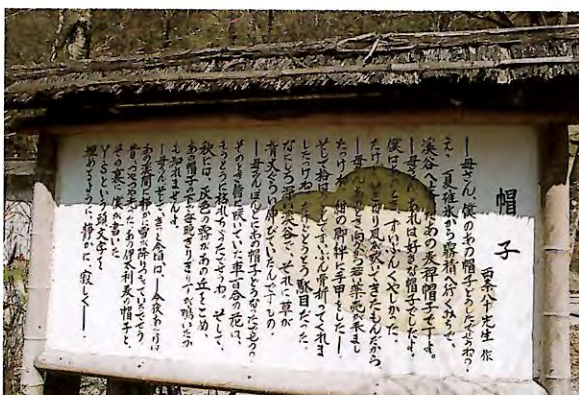 帽子
西条八十先生 作
―母さん、僕のあの帽子どうしたでせうね?
え、夏碓氷から霧積へ行くみちで、
渓谷へ落したあの麦稈帽子ですよ。
―母さん、あれは好きな帽子でしたよ。
僕はあのとき、ずいぶんくやしかった。
だけど、いきなり風が吹いてきたもんだから
―母さん、あのとき向から若い薬売が来まし
たっけね、紺の脚絆に手甲をした―。
そして拾はうとしてずいぶん骨折ってくれま
したっけね。だけどとうとう駄目だった。
なにしろ深い渓谷で、それに草が
背丈ぐらい伸びていたんですもの。
―母さんほんとにあの帽子どうなったでせう?
そのとき傍に咲いていた車百合の花は、
もうとうに枯れちゃったでせうね。そして、
秋には、灰色の霧があの丘をこめ、
あの帽子の下で毎晩きりぎりすが鳴いたか
も知れませんよ。
―母さんそしてきっと今頃は、―今夜あたりは
あの渓間に静かに雪が降りつもっているでせう。
昔つやつや光ったあの伊太利麦の帽子と、
その裏に僕が書いた
Y・Sという頭文字を
埋めるように、静かに、寂しく―